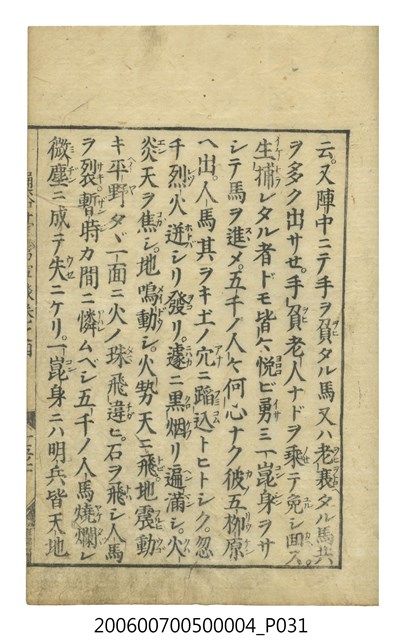 云。又陣中ニテ手ヲ負タル馬又ハ老衰タル馬共
ヲ多ク出サセ。手負老人ナドヲ乗テ免シ回ス。
生捕レタル者ドモ皆々悦ビ勇ミ一崑身ヲサ
シテ馬ヲ進メ。五千ノ人々何心ナク彼五柳原
ヘ出。人馬其ヲキエノ穴ニ蹈込トヒトシク。忽
チ烈火迸シリ發リ。遽ニ黒烟リ遍滿シ。火
炎天ヲ焦シ。地鳴動シ。火勢天ニ飛。地震動
キ平野タヾ一面ニ火ノ珠飛違ヒ。石ヲ飛シ人馬
ヲ裂。暫時カ間ニ憐ムベシ五千ノ人馬燒爛レ
微塵ニ成テ失ニケリ。一崑身ニハ明兵皆天地
200600700500004_P031